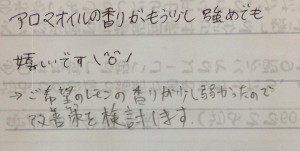 アロマオイルの香りがもう少し強めでも
嬉しいです\(^o^)/
→ご希望のレモンの香りが少し弱かったので
改善策を検討します。